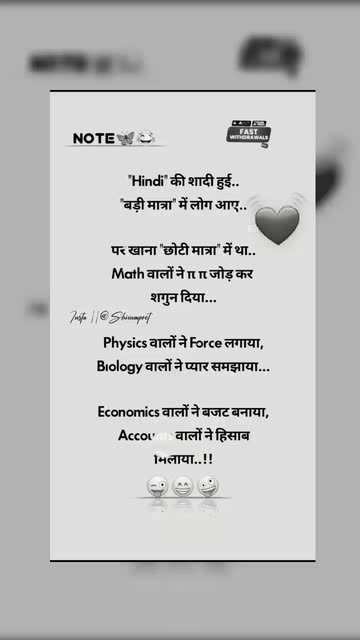 NOTE🦋😂
FAST
WITHDRAWALS
"Hindi" की शादी हुई..
"बड़ी मात्रा" में लोग आए..
पर खाना "छोटी मात्रा" में था..
Math वालों ने π π जोड़ कर
शगुन दिया...
Physics वालों ने Force लगाया,
Biology वालों ने प्यार समझाया...
Economics वालों ने बजट बनाया,
Accounts वालों ने हिसाब
मिलाया..!!
😜😁🤪